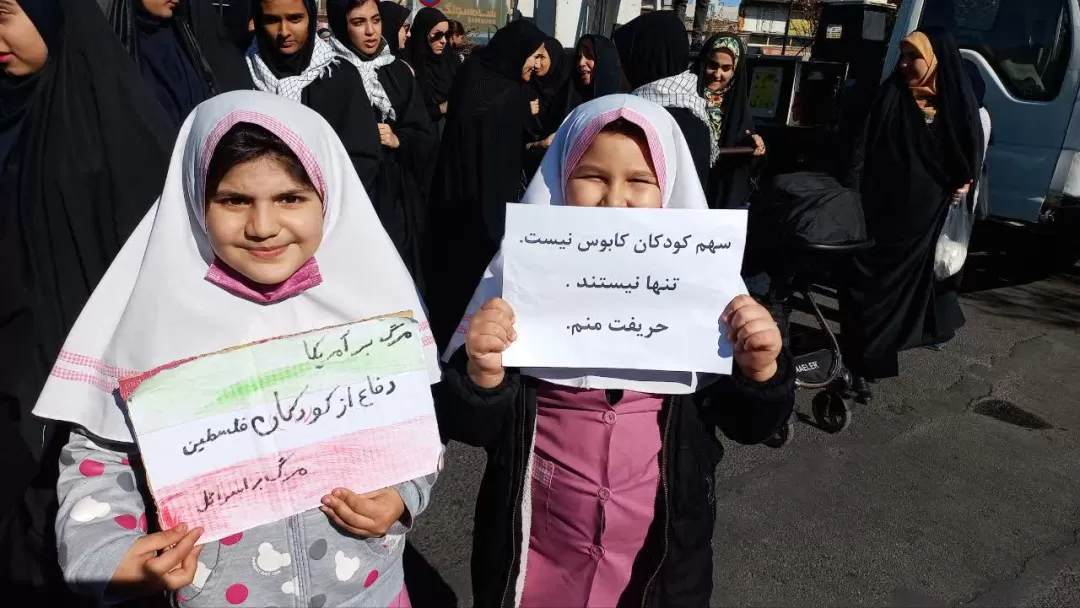 مرگ بر آمریکا
دفاع از کودکان فلسطین
مرگ بر اسرائیل
سهم کودکان کابوس نیست.
تنها نیستند .
حریفت منم.
SAMSUNG